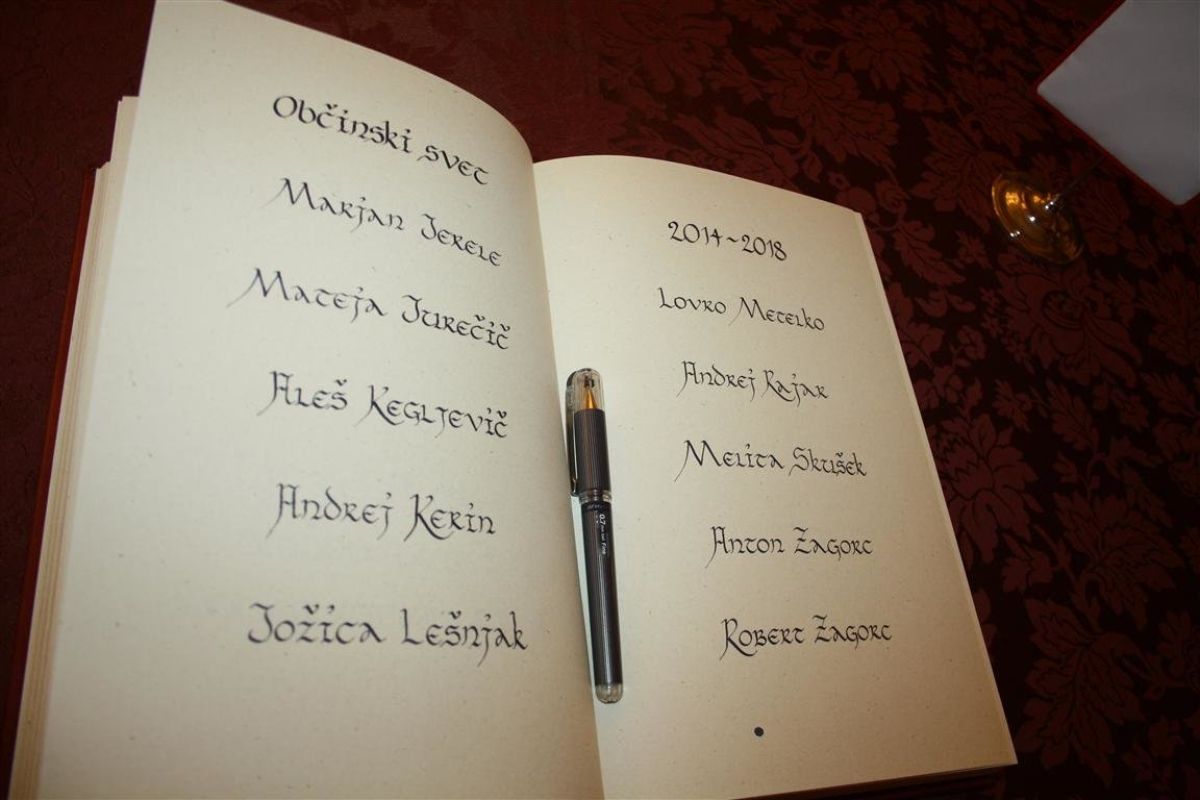 Občinski svet
Marjan Jerele
Mateja Jurečič
Aleš Kegljevič
Andrej Kerin
Jožica Lešnjak
2014~2018
Lovro Metelko
Andrej Rajar
Melita Skušek
Anton Žagorc
Robert Žagorc
0.7